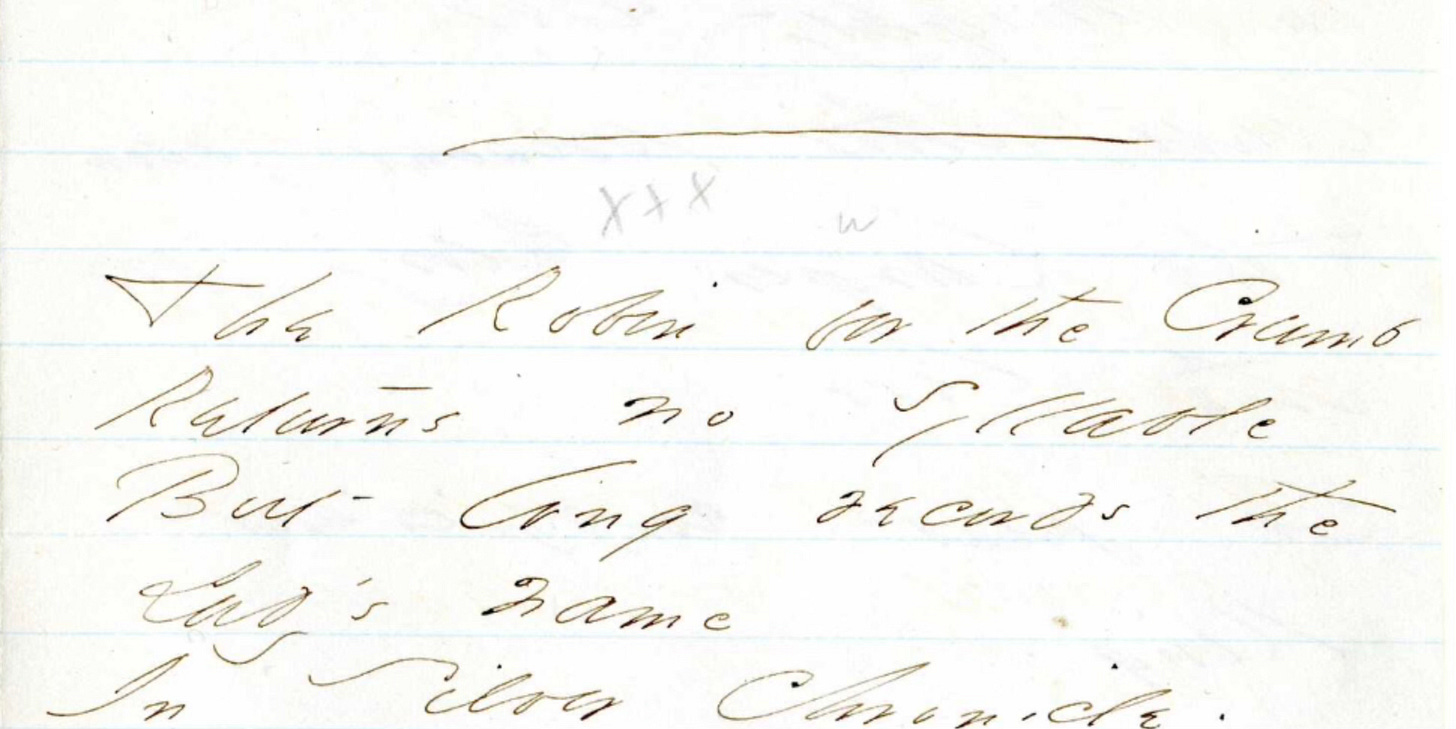 x x x w
The Robin for the Crumb
Returns no Syllable
But long records the
Lady's name
In Silver Chronicle.